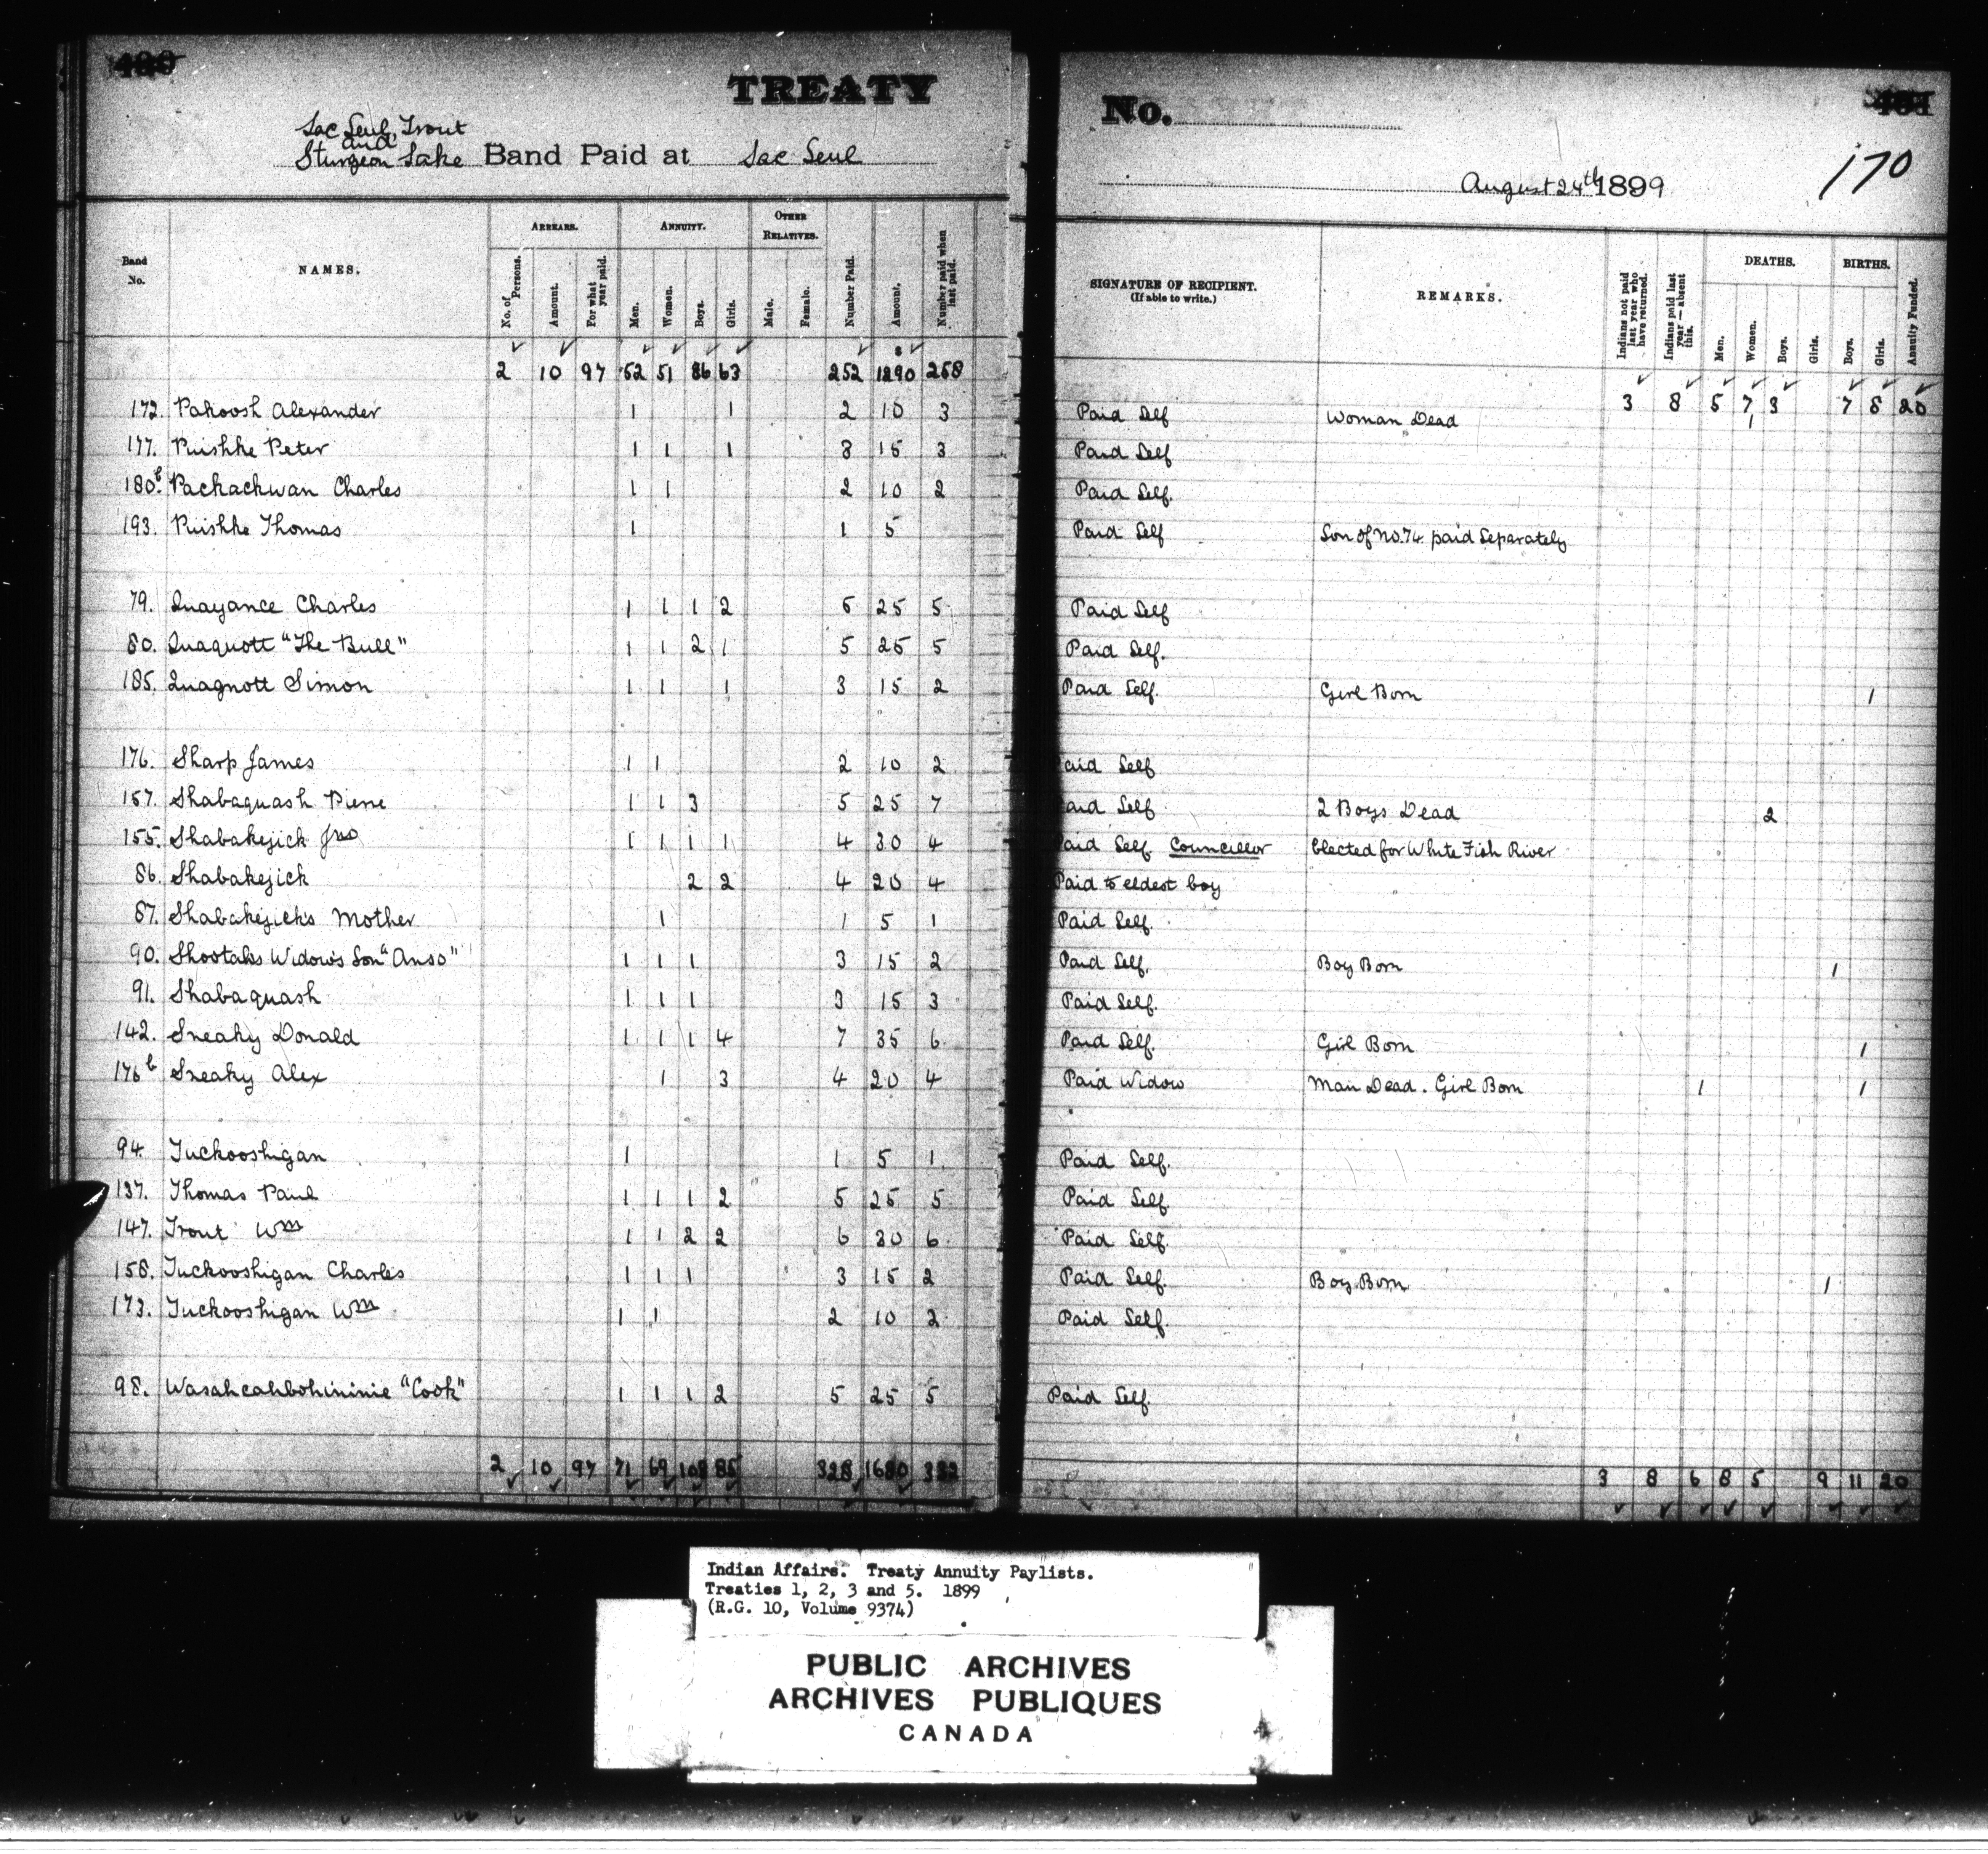 TREATY
No.
Lac Seul, Trout
and
Sturgeon Lake Band Paid at Lac Seul
August 24th 1899
170
Band No. NAMES. ARREARS. No. of Persons. Amount. For what year paid. ANNUITY. Men. Women. Boys. Girls. OTHER RELATIVES. Male. Female. Number Paid. Amount. Number paid when last paid. SIGNATURE OF RECIPIENT. (If able to write.) REMARKS. Indians not paid last year who have returned. Indians paid last year — absent this. DEATHS. Men. Women. Boys. Girls. BIRTHS. Boys. Girls. Annuity Funded.
2 10 97 52 51 86 63 252 $ 1290 258 3 8 5 7 3 7 8 20
172. Pakoosh Alexander 1 1 2 10 3 Paid Self Woman Dead 1
177. Puishke Peter 1 1 1 3 15 3 Paid Self
180b. Packackwan Charles 1 1 2 10 2 Paid Self.
193. Puishke Thomas 1 1 5 Paid Self Son of No. 74 paid Separately
79. Quayance Charles 1 1 1 2 5 25 5 Paid Self
80. Quaquott "The Bull" 1 1 2 1 5 25 5 Paid Self.
185. Quagnott Simon 1 1 1 3 15 2 Paid Self. Girl Born 1
176. Sharp James 1 1 2 10 2 Paid Self
157. Shabaquash Pierre 1 1 3 5 25 7 Paid Self 2 Boys Dead 2
155. Shabakejick Jno 1 1 1 1 4 30 4 Paid Self Councillor Elected for White Fish River
86. Shabakejick 2 2 4 20 4 Paid to eldest boy
87. Shabakejick's Mother 1 1 5 1 Paid Self.
90. Shootaks Widow's Son "Anso" 1 1 1 3 15 2 Paid Self. Boy Born 1
91. Shabaquash 1 1 1 3 15 3 Paid Self.
142. Sneaky Donald 1 1 1 4 7 35 6 Paid Self. Girl Born 1
176b Sneaky Alex 1 3 4 20 4 Paid Widow Man Dead. Girl Born 1 1
94. Tuckooshigan 1 1 5 1 Paid Self.
137. Thomas Paul 1 1 1 2 5 25 5 Paid Self.
147. Trout Wm 1 1 2 2 6 30 6 Paid Self.
158. Tuckooshigan Charles 1 1 1 3 15 2 Paid Self. Boy Born 1
173. Tuckooshigan Wm 1 1 2 10 2 Paid Self.
98. Wasahcahbohininie "Cook" 1 1 1 2 5 25 5 Paid Self.
2 10 97 71 69 103 85 328 1680 332 3 8 6 8 5 9 11 20
Indian Affairs. Treaty Annuity Paylists.
Treaties 1, 2, 3 and 5. 1899
(R.G. 10, Volume 9374)
PUBLIC ARCHIVES
ARCHIVES PUBLIQUES
CANADA